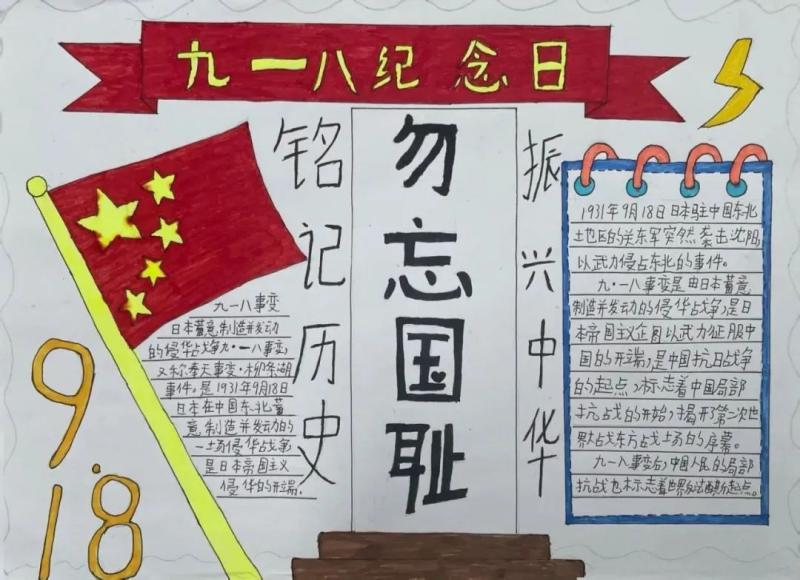 九一八纪念日
铭记历史
勿忘国耻
振兴中华
九一八事变
日本蓄意制造并发动
的侵华战争九·一八事变,
又称奉天事变·柳条湖
事件。是1931年9月18日
日本在中国东北蓄
意制造并发动的
一场侵华战争
是日本帝国主义
侵华的开端。
9.18
1931年9月18日日本驻中国东北
地区的关东军突然袭击沈阳,
以武力侵占东北的事件。
九·一八事变是由日本蓄意
制造并发动的侵华战争,是日
本帝国主义企图以武力征服中
国的开端,是中国抗日战争
的起点,标志着中国局部
抗战的开始,揭开了第二次世
界战东方战场的序幕。
九一八事变后,中国人民的局部
抗战也标志着世界反法西斯起点。